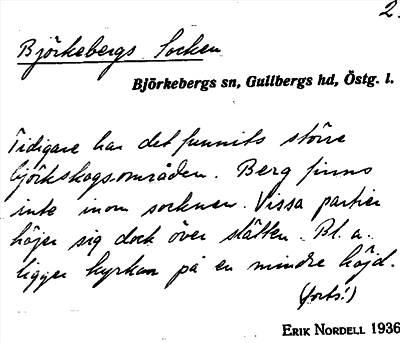 2.
Björkebergs Socken
Björkebergs sn, Gullbergs hd, Östg. l.
Tidigare har det funnits större
björkskogsområden. Berg finns
inte inom socknen. Vissa partier
höjer sig dock över slätten. Bl. a.
ligger kyrkan på en mindre höjd.
(forts.)
ERIK NORDELL 1936